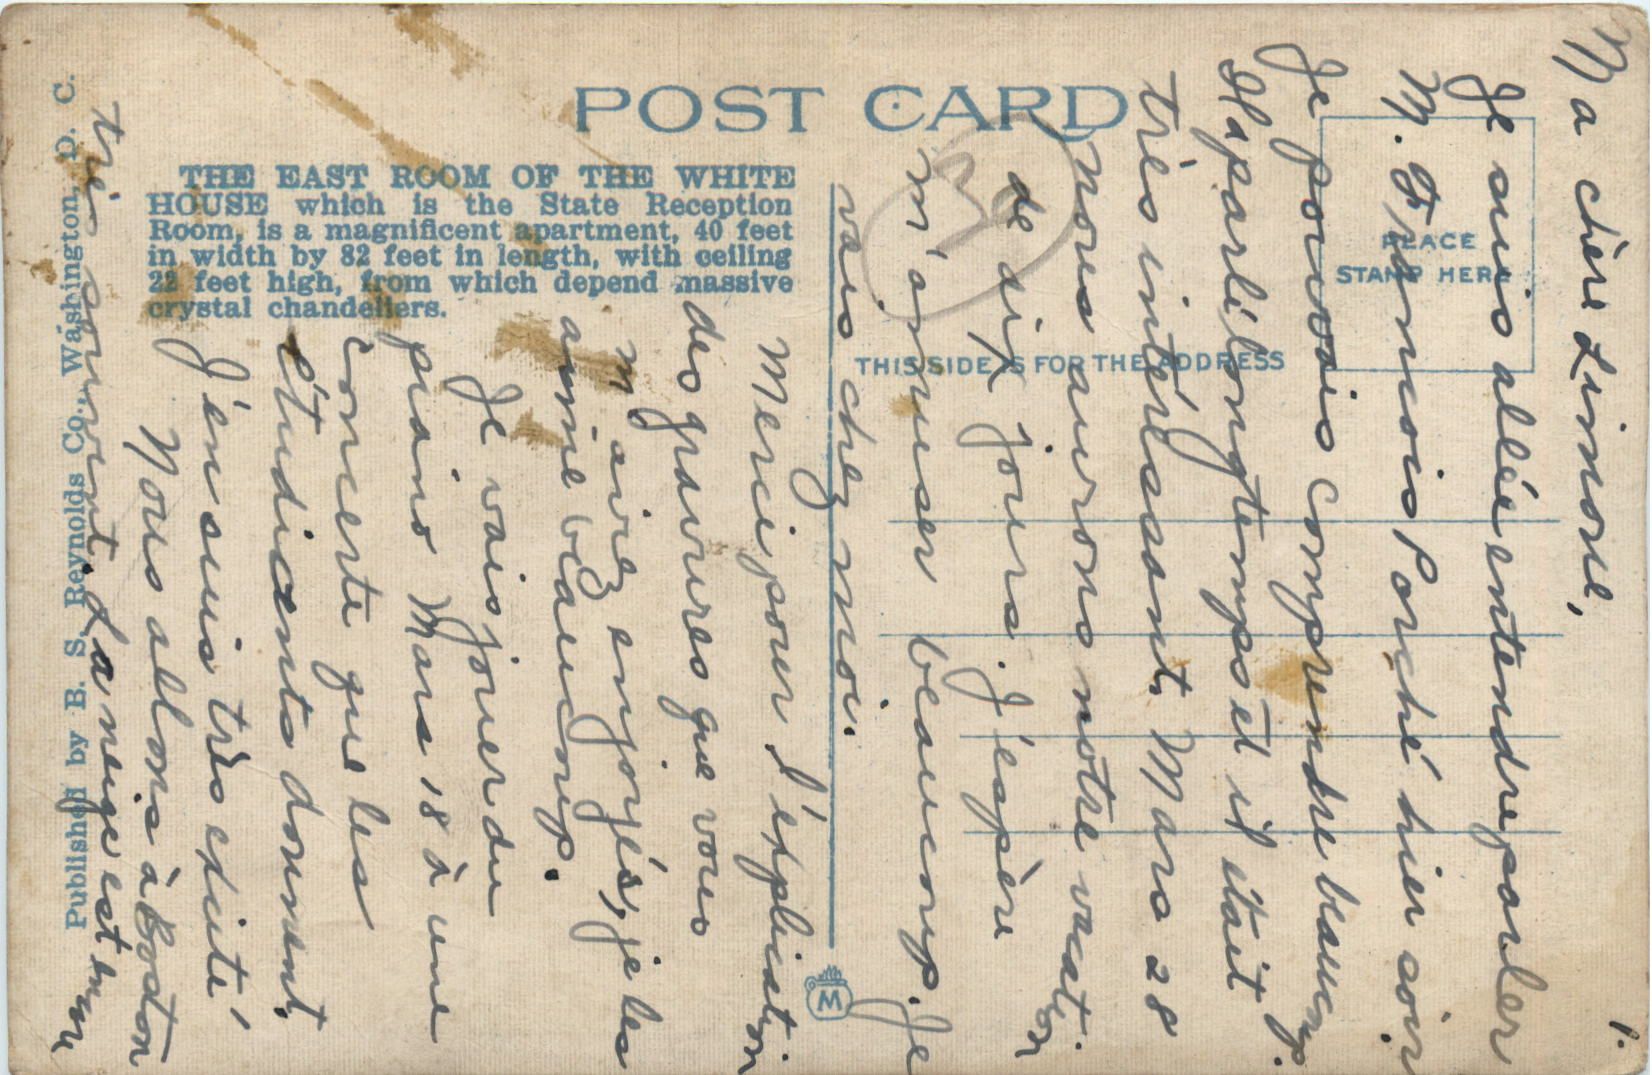 POST CARD
THE EAST ROOM OF THE WHITE
HOUSE which is the State Reception
Room, is a magnificent apartment, 40 feet
in width by 82 feet in length, with ceiling
22 feet high, from which depend massive
crystal chandeliers.
PLACE
STAMP HERE
THIS SIDE IS FOR THE ADDRESS
Published by B. S. Reynolds Co., Washington, D. C.
M
1.
Ma chère Simone,
Je suis allée entendre parler
M. François Porché hier soir
Je pouvais comprendre beaucoup.
Il a parlé longtemps et il était
très intéressant. Mars 28
nous aurons notre vacation
de dix jours. J'espère
m'amuser beaucoup. Je
vais chez moi.
Merci pour l'éxplication
des gravures que vous
m'avez enjoyés, je les
aime beaucoup.
Je vais jouer du
piano Mars 18 à une
concerte que les
étudicents donnent.
J'en suis très exité!
Nous allons à Boston
très souvent. La neige est